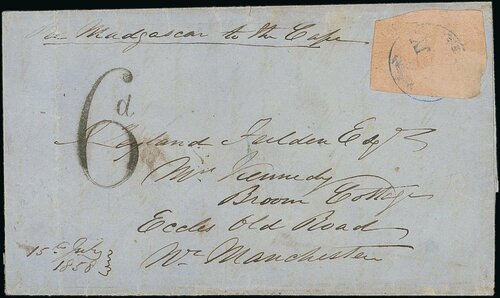 Per Madgascar to the Cape
6d
Leyland Feilden Esqr
Mrs Kennedy
Broom Cottage
Eccles Old Road
Nr Manchester
15th July
1858